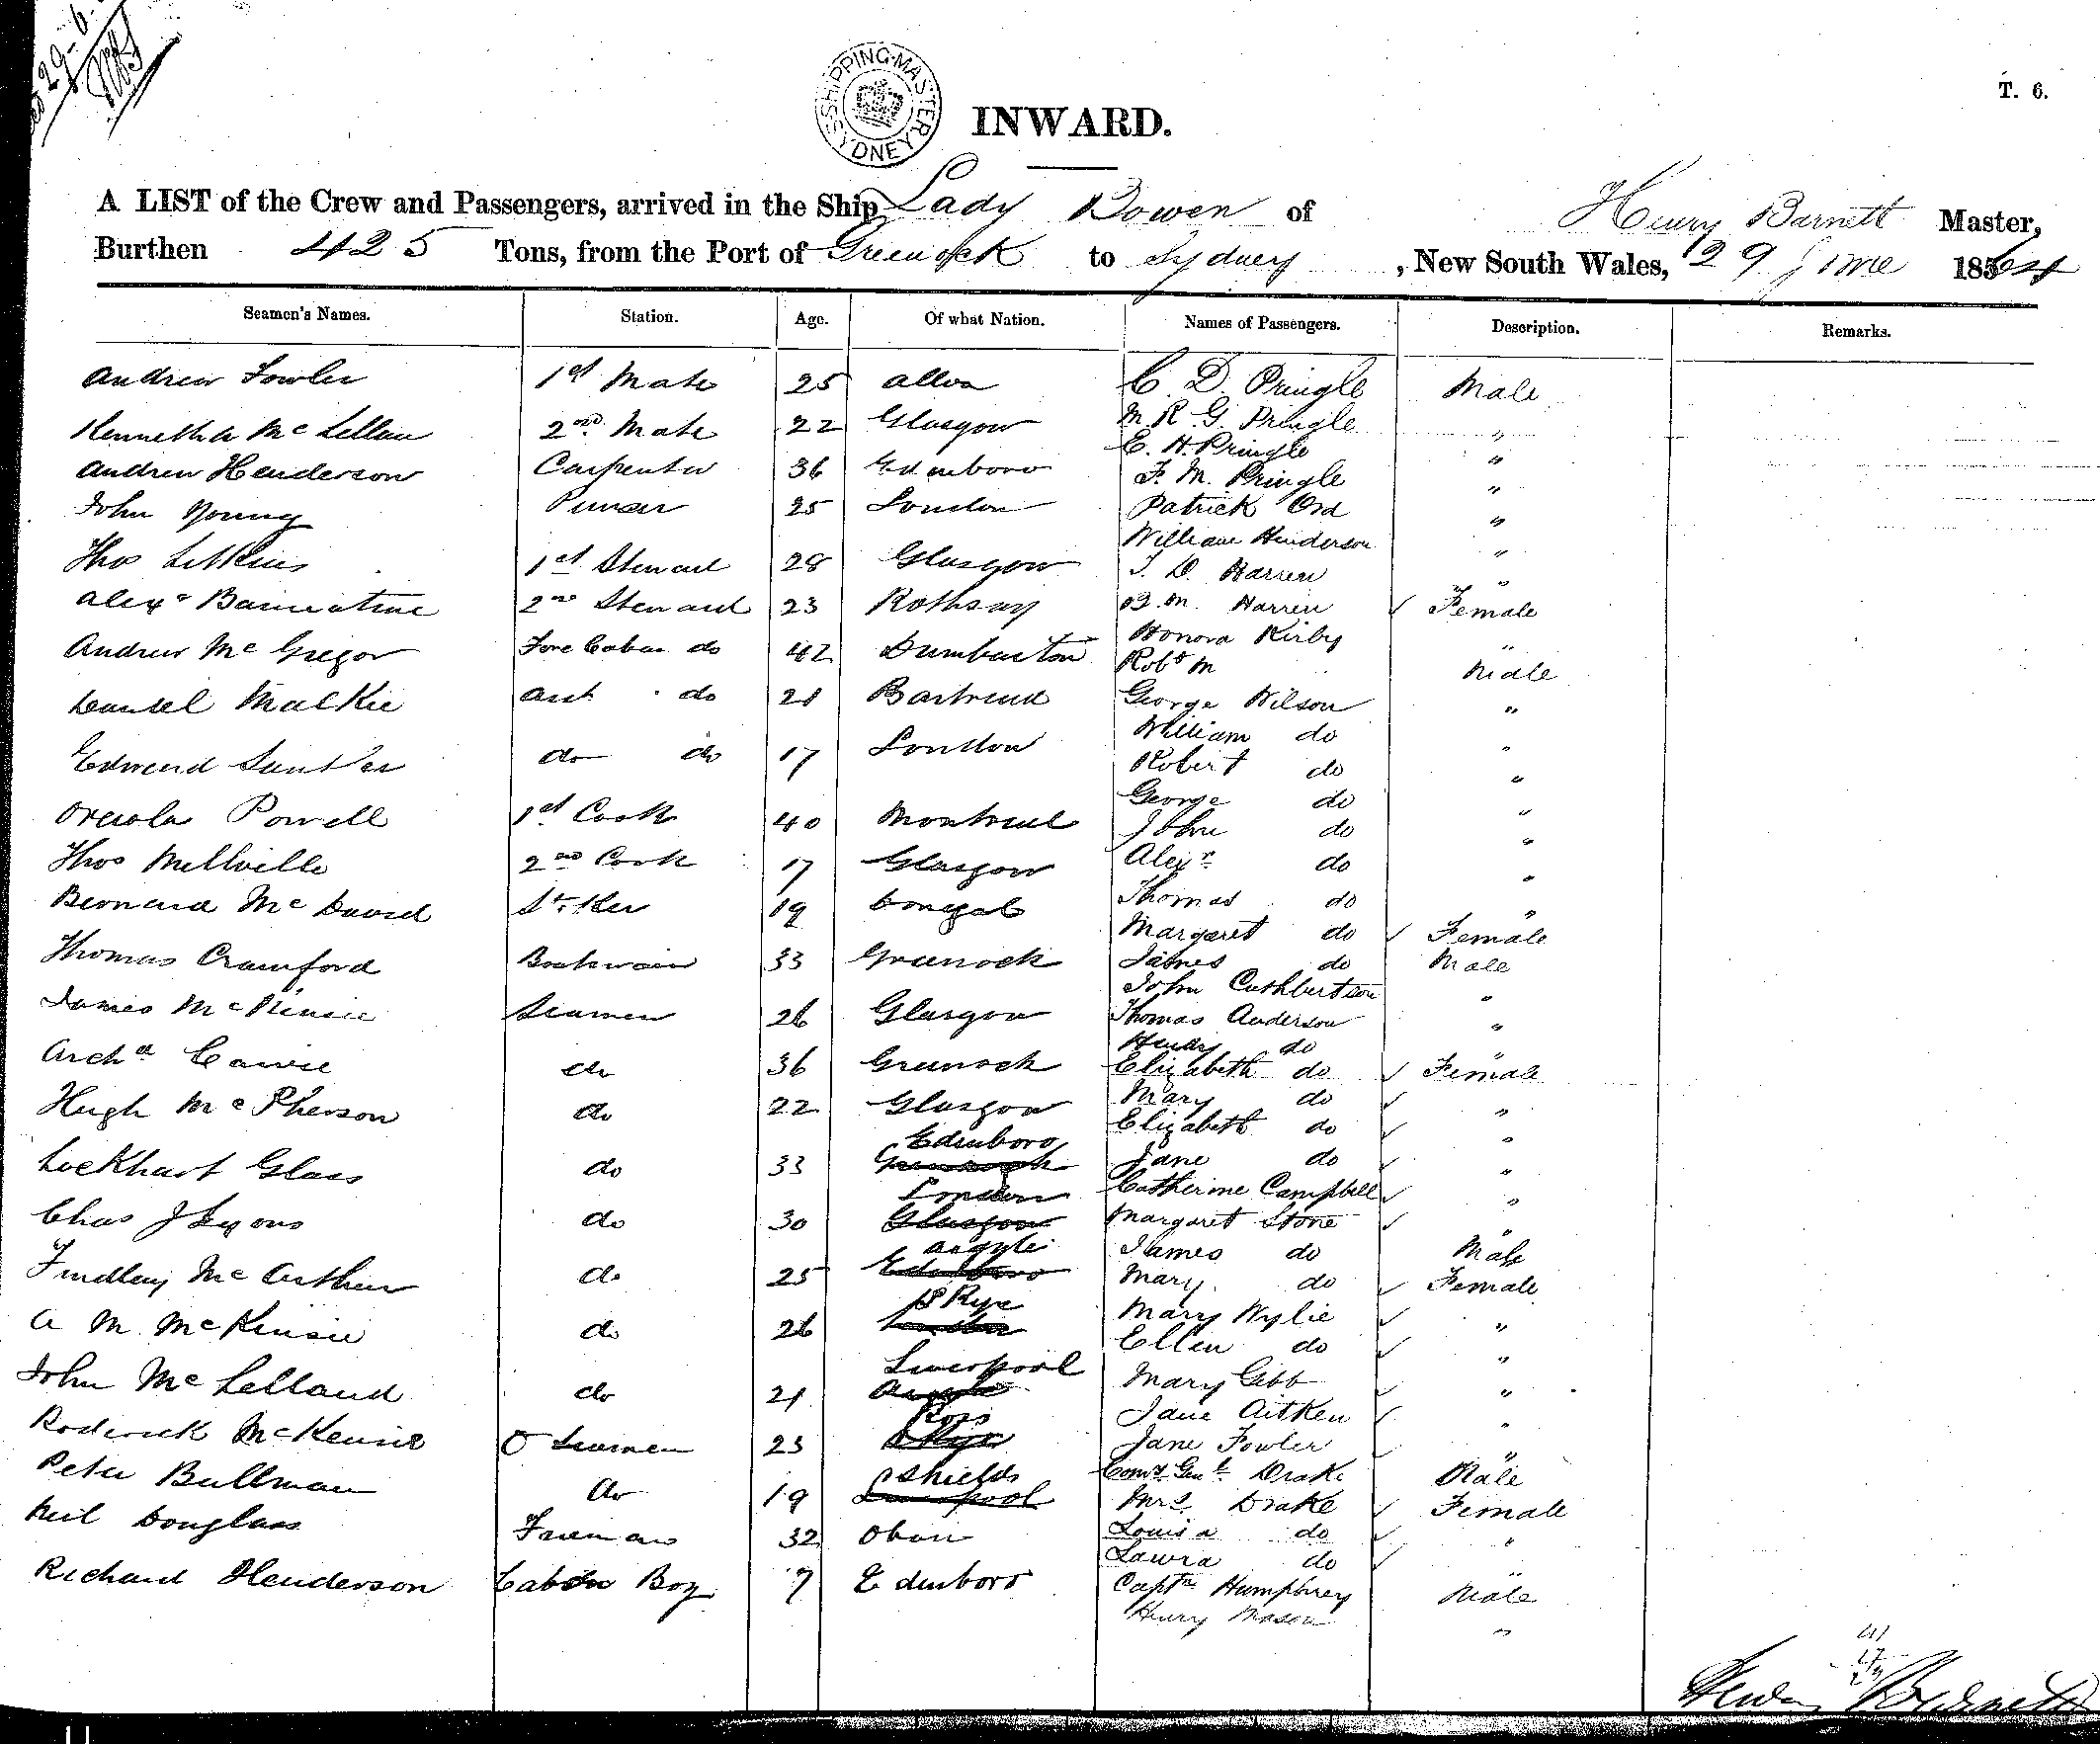 29-6-
SHIPPING MASTER SYDNEY
T. 6.
INWARD.
A LIST of the Crew and Passengers, arrived in the Ship Lady Bowen of Henry Barnett Master,
Burthen 425 Tons, from the Port of Greenock to Sydney , New South Wales, 29 June 1864
Seamen's Names. Station. Age. Of what Nation. Names of Passengers. Description. Remarks.
Andrew Fowler 1st Mate 25 Alloa C. D. Pringle Male
Kenneth Mc Lellan 2nd Mate 22 Glasgow M. R. G. Pringle "
E. H. Pringle "
Andrew Henderson Carpenter 36 Edinboro F. M. Pringle "
John Young Purser 25 London Patrick Ord "
William Henderson "
Thos 1st Steward 28 Glasgow T. D. Warren "
Alexr Bannatine 2nd Steward 23 Rothsay B. M. Warren ✓ Female
Honora Kirby "
Andrew Mc Gregor Fore Cabin do 42 Dumbarton Robt M Male
Daniel MacKie Asst do 21 George Wilson "
William do "
Edward do do 17 London Robert do "
George do "
Powell 1st Cook 40 Montreal John do "
Thos Mellville 2nd Cook 17 Glasgow Alexr do "
Bernard Mc David 19 Donegal Thomas do "
Margaret do ✓ Female
Thomas Crawford Boatswain 33 Greenock James do Male
John Cuthbertson "
James McKensie Seamen 26 Glasgow Thomas Anderson "
Henry do "
Archd Cawie do 36 Greenock Elizabeth do ✓ Female
Hugh Mc Pherson do 22 Glasgow Mary do ✓ "
Elizabeth do ✓ "
Lockhart Glass do 33 Edinboro Greenock Jane do ✓ "
Catherine Campbell ✓ "
Chas J Lyons do 30 London Glasgow Margaret Stone ✓ "
James do Male
Findlay Mc Arthur do 25 Argyle Edinboro Mary do ✓ Female
A M. McKensie do 26 Skye London Mary Wylie ✓ "
Ellen do ✓ "
John Mc Lelland do 21 Liverpool Argyle Mary Gibb ✓ "
Jane Aitken ✓ "
Roderick McKensie O Seamen 23 Ross Skye Jane Fowler ✓ "
Comy Genl Drake Male
Peter Bullman do 19 Shields Liverpool Mrs Drake ✓ Female
Neil Douglass Fireman 32 Oban Louisa do ✓ "
Laura do ✓ "
Richard Henderson Cabin Boy 17 Edinboro Captn Humphrey Male
Henry Mason "
41
27
Henry Barnett